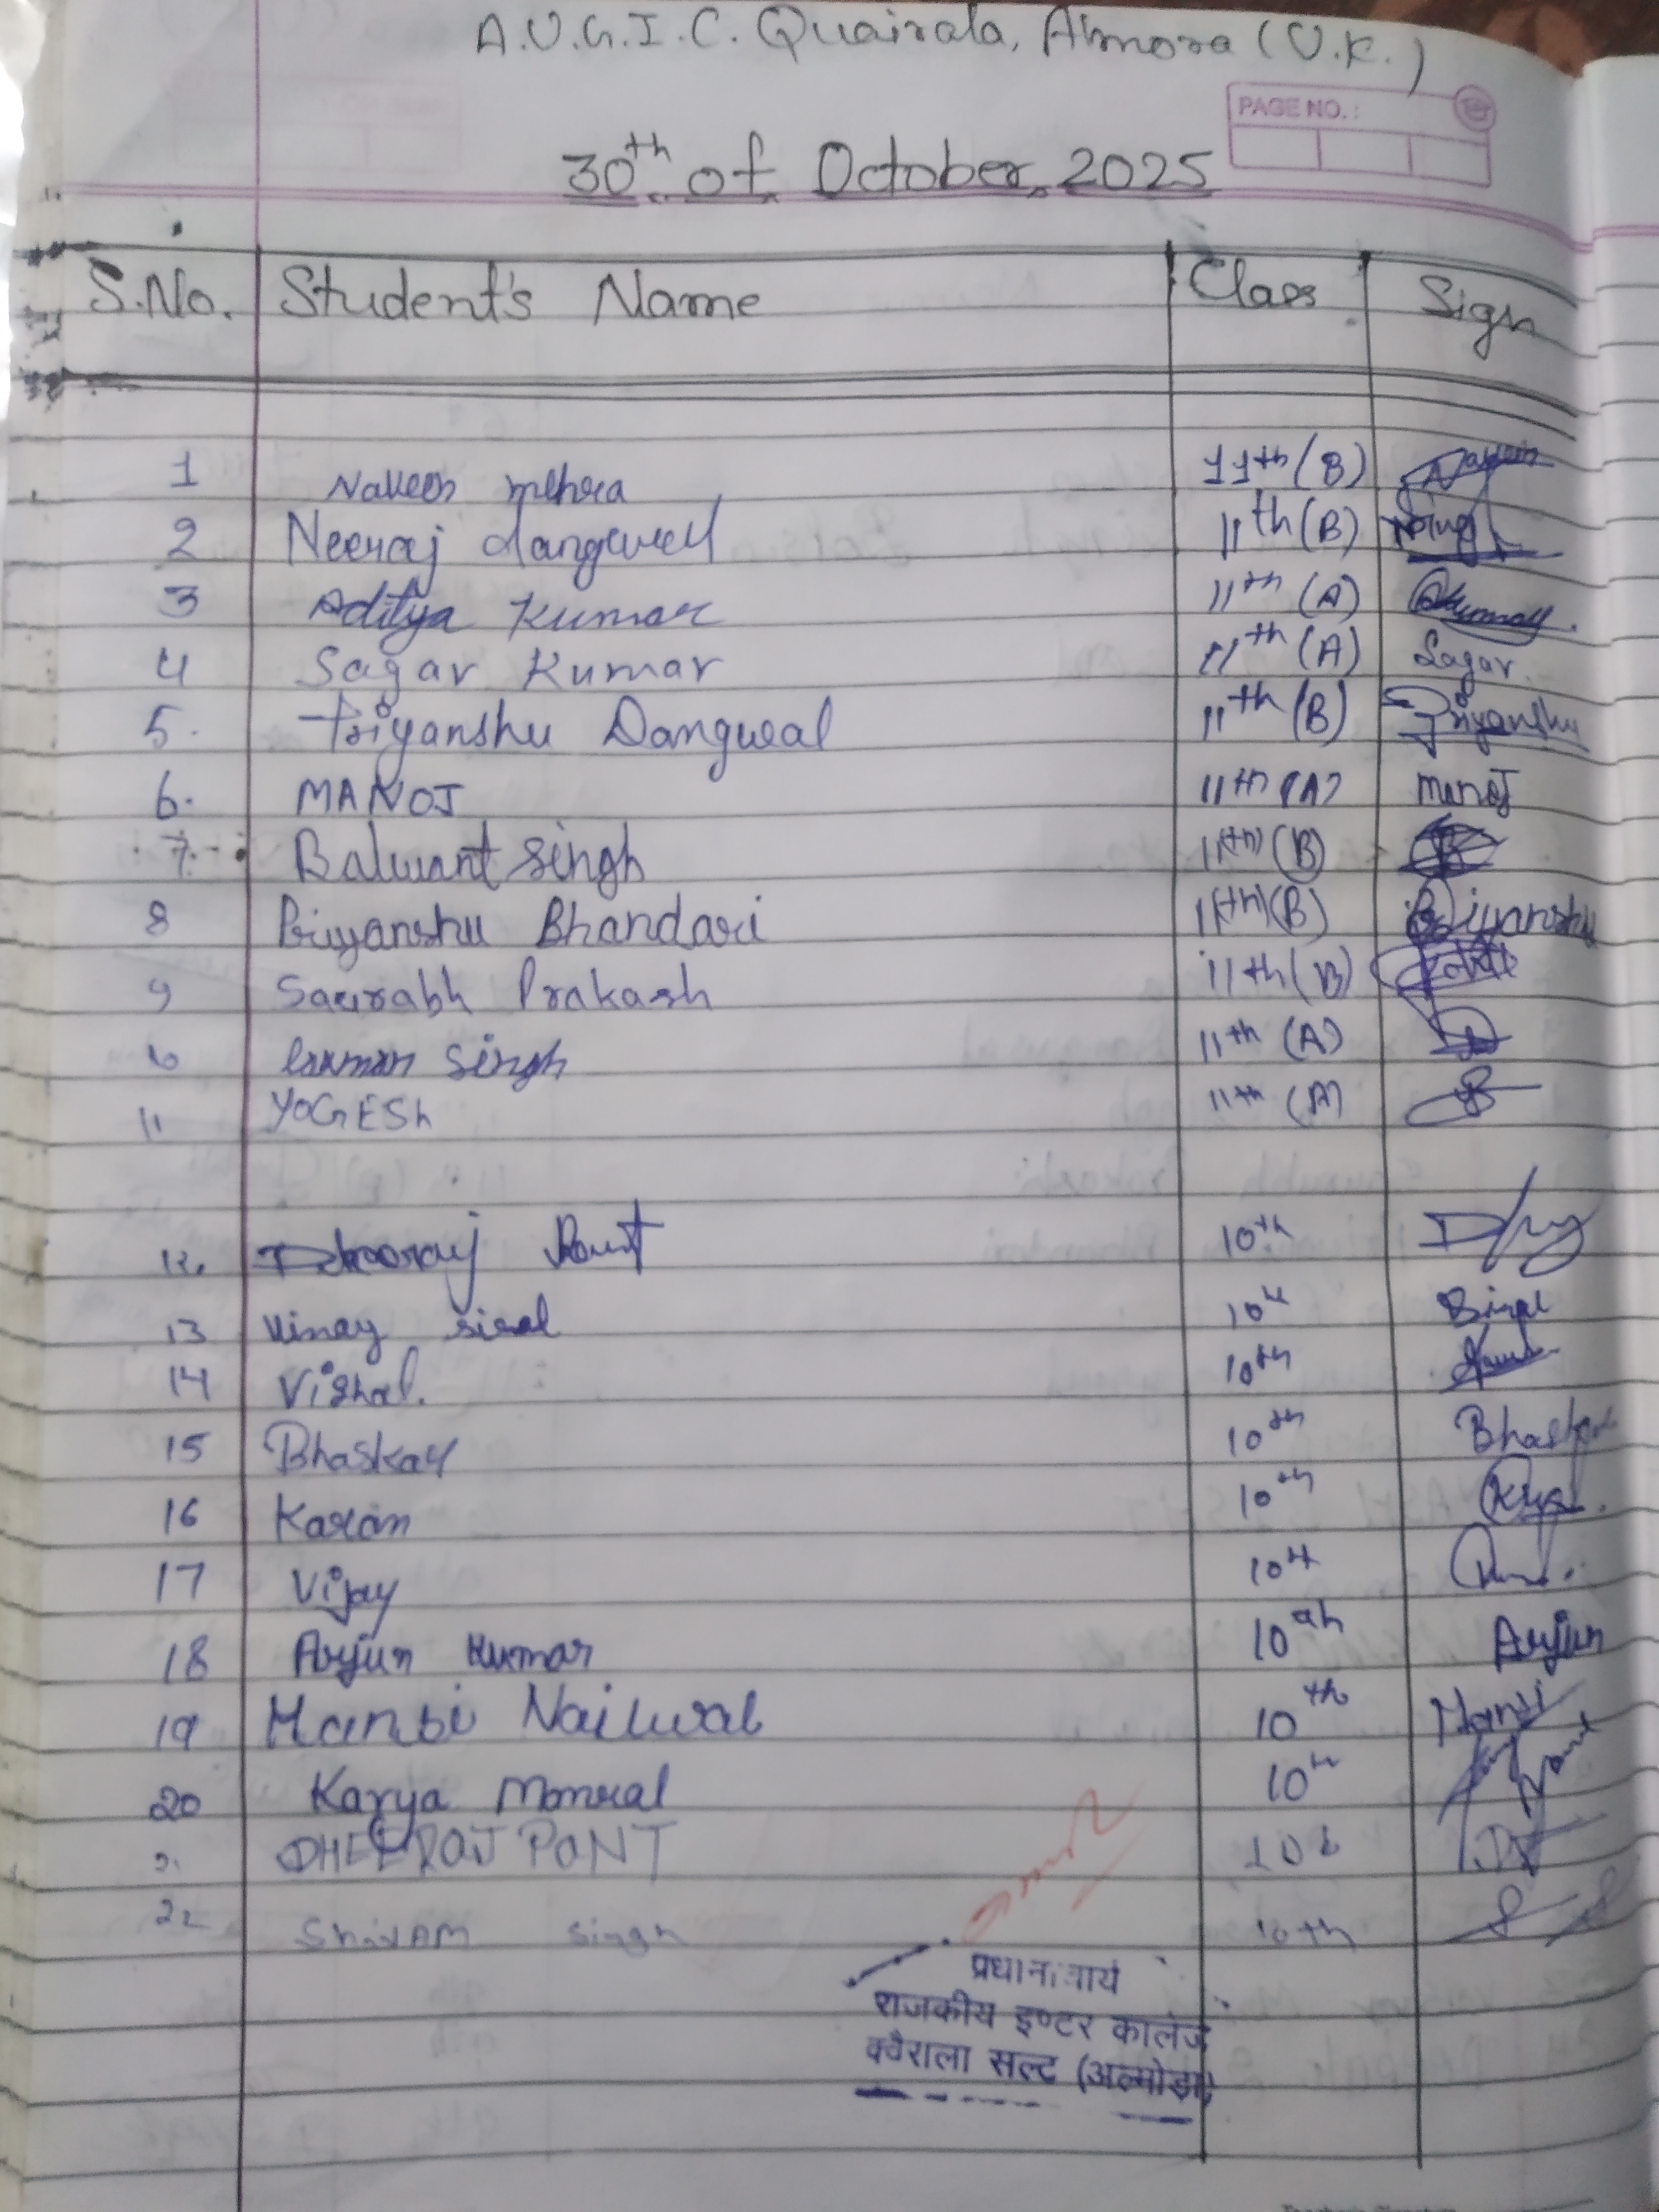 A.U.G.I.C. Quairala, Almora (U.K.)
PAGE NO.:
30th of October, 2025
S.No. Student's Name Class Sign
1 Naveen mehra 11th (B) Naveen
2 Neeraj dangwal 11th (B)
3 Aditya Kumar 11th (A) Akumar
4 Sagar Kumar 11th (A) Sagar
5. Priyanshu Dangwal 11th (B) Priyanshu
6. MANOJ 11th (A) manoj
7. Balwant singh 11(th) (B) B
8 Priyanshu Bhandari 11(th) (B) Priyanshu
9 Saurabh Prakash 11th (B)
10 laxman singh 11th (A)
11 YOGESh 11th (A)
12. Dheeraj Pant 10th
13 Vinay 10th
14 Vishal. 10th
15 Bhaskar 10th Bhaskar
16 Karan 10th
17 Vijay 10th
18 Arjun Kumar 10th Arjun
19 Hansi Nailwal 10th Hansi
20 Kavya Manral 10th
21 DHEERAJ PANT 10th
22 ShivAM Singh 10th
प्रधानाचार्य
राजकीय इण्टर कालेज
क्वैराला सल्ट (अल्मोड़ा)